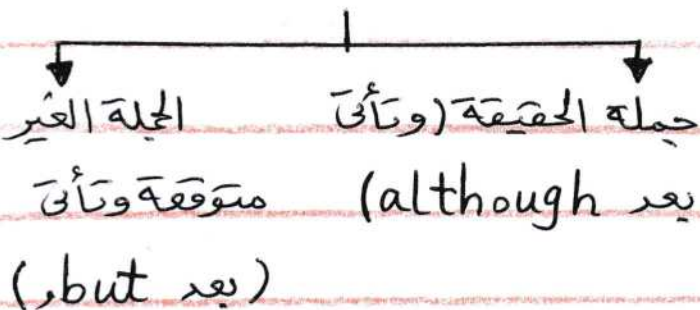 جملة الحقيقة (وتأتى
بعد although)
الجملة الغير
متوقعة وتأتى
(بعد but,)